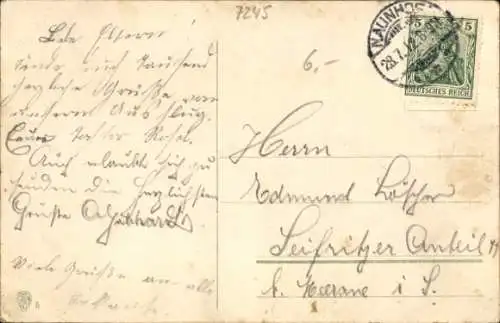 7245
6,-
NAUNHOF
28.7.12.
5
DEUTSCHES REICH
Liebe Eltern
sende euch tausend
herzliche Grüße von
unserem Ausflug.
Eure Tochter Rosel.
Auch erlaubt sich zu
senden die herzlichsten
Grüsse
Viele Grüße an alle
Herrn
Edmund Löscher
Seifritzer Anteil
b. Meerane i. S.